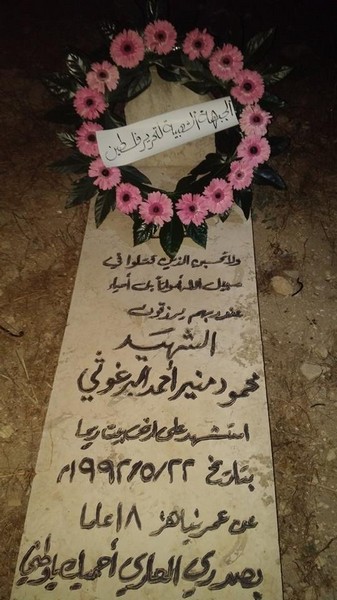 الجبهة الشعبية لتحرير فلسطين
ولا تحسبن الذين قتلوا في
سبيل الله أمواتا بل أحياء
عند ربهم يرزقون
الشهيد
محمود منير أحمد البرغوثي
استشهد على أرض بيت ريما
بتاريخ ٢٢/٥/١٩٩٢م
عن عمر يناهز ١٨ عاما
بصدري العاري أحميك يا وطني